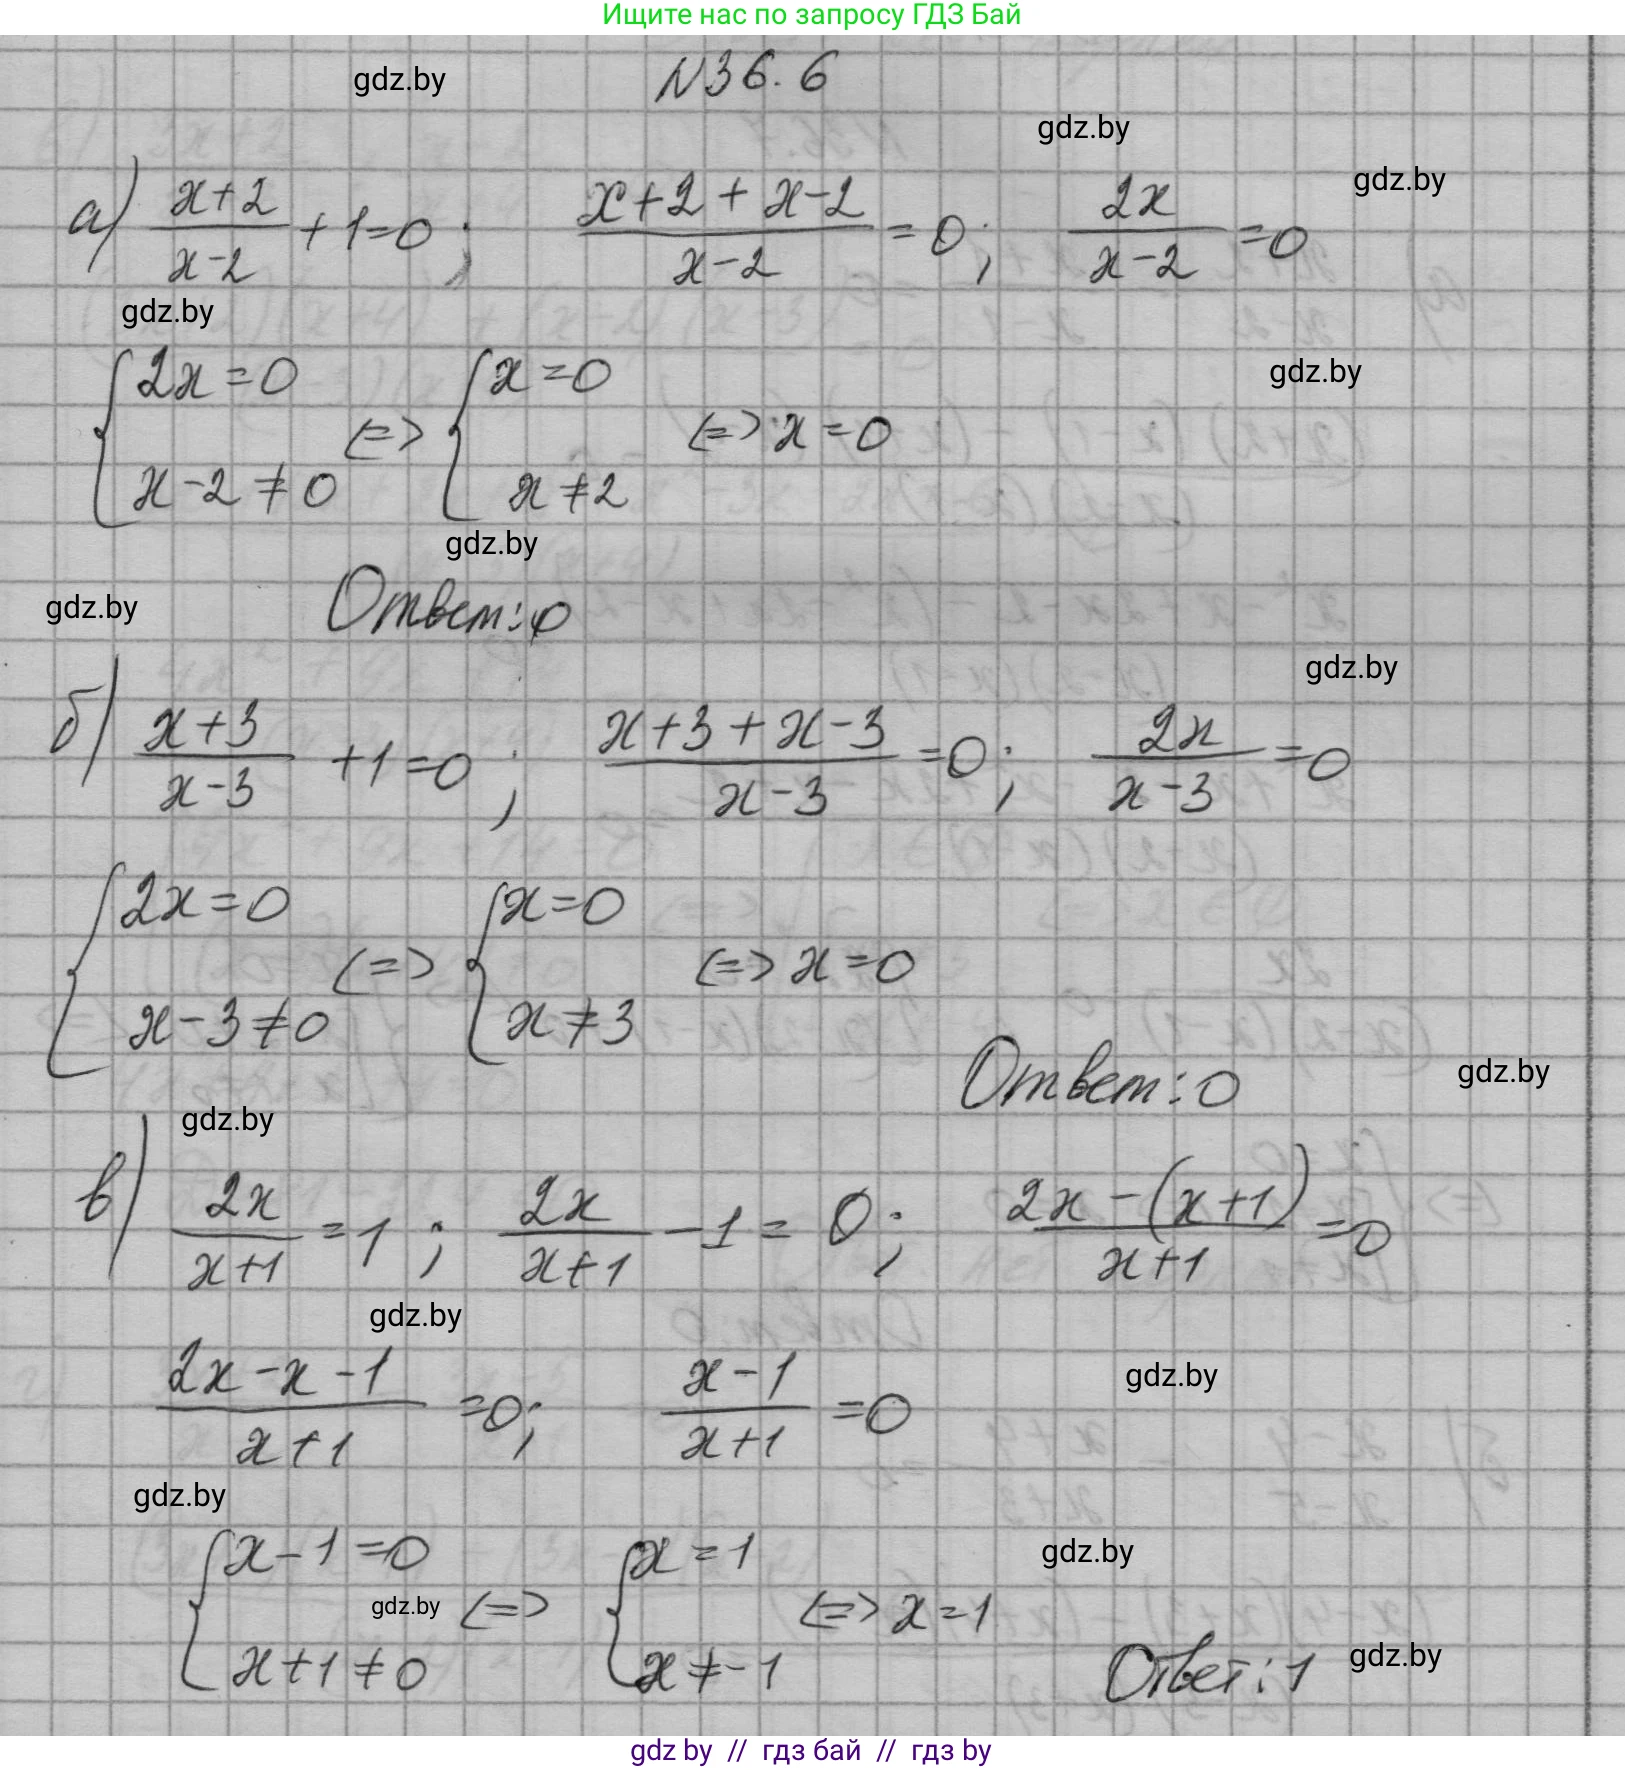 Ищите нас по запросу ГДЗ Бай
gdz.by
N36.6
gdz.by
gdz.by
а) (x+2)/(x-2) + 1=0; (x+2+x-2)/(x-2) = 0; 2x/(x-2) =0
gdz.by
gdz.by
{2x=0 x-2≠0 <=> {x=0 x≠2 <=> x=0
gdz.by
gdz.by
Ответ: 0
gdz.by
б) (x+3)/(x-3) +1=0; (x+3+x-3)/(x-3) =0; 2x/(x-3) =0
{2x=0 x-3≠0 <=> {x=0 x≠3 <=> x=0
Ответ: 0
gdz.by
gdz.by
в) 2x/(x+1) =1; 2x/(x+1) -1= 0; (2x-(x+1))/(x+1) =0
gdz.by
(2x-x-1)/(x+1) =0; (x-1)/(x+1) =0
gdz.by
gdz.by
{x-1=0 x+1≠0 <=> {x=1 x≠-1 <=> x=1
gdz.by
gdz.by
Ответ: 1
gdz.by
gdz by // гдз бай // гдз by